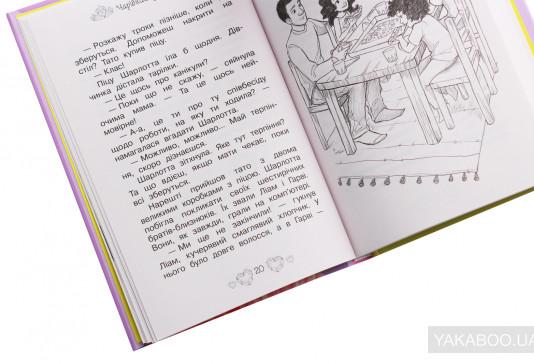 Чарівне
— Розкажу трохи пізніше, коли всі
зберуться. Допоможеш накрити на
стіл? Тато купив піцу.
— Клас!
Піцу Шарлотта їла б щодня. Дів-
чинка дістала тарілки.
— Це щось про канікули?
— Поки що не скажу, — сяйнула
очима мама. — Та це щось ней-
мовірне!
— А-а, це ти про ту співбесіду
щодо роботи, на яку ти ходила? —
намагалася вгадати Шарлотта.
— Можливо, можливо... Май терпін-
ня, скоро дізнаєшся.
Шарлотта зітхнула. Яке тут терпіння?
Та що вдієш, якщо мати чекає, поки
всі зберуться.
Нарешті прийшов тато з двома
великими коробками з піцою. Шарлотта
побігла покликати своїх шестирічних
братів-близнюків. Їх звали Ліам і Гарві.
Вони, як завжди, грали на комп'ютері.
— Ми ще не закінчили! — гукнув
Ліам, кучерявий смаглявий хлопчик. У
нього було довге волосся, а в Гарві —
20
YAKABOO.UA